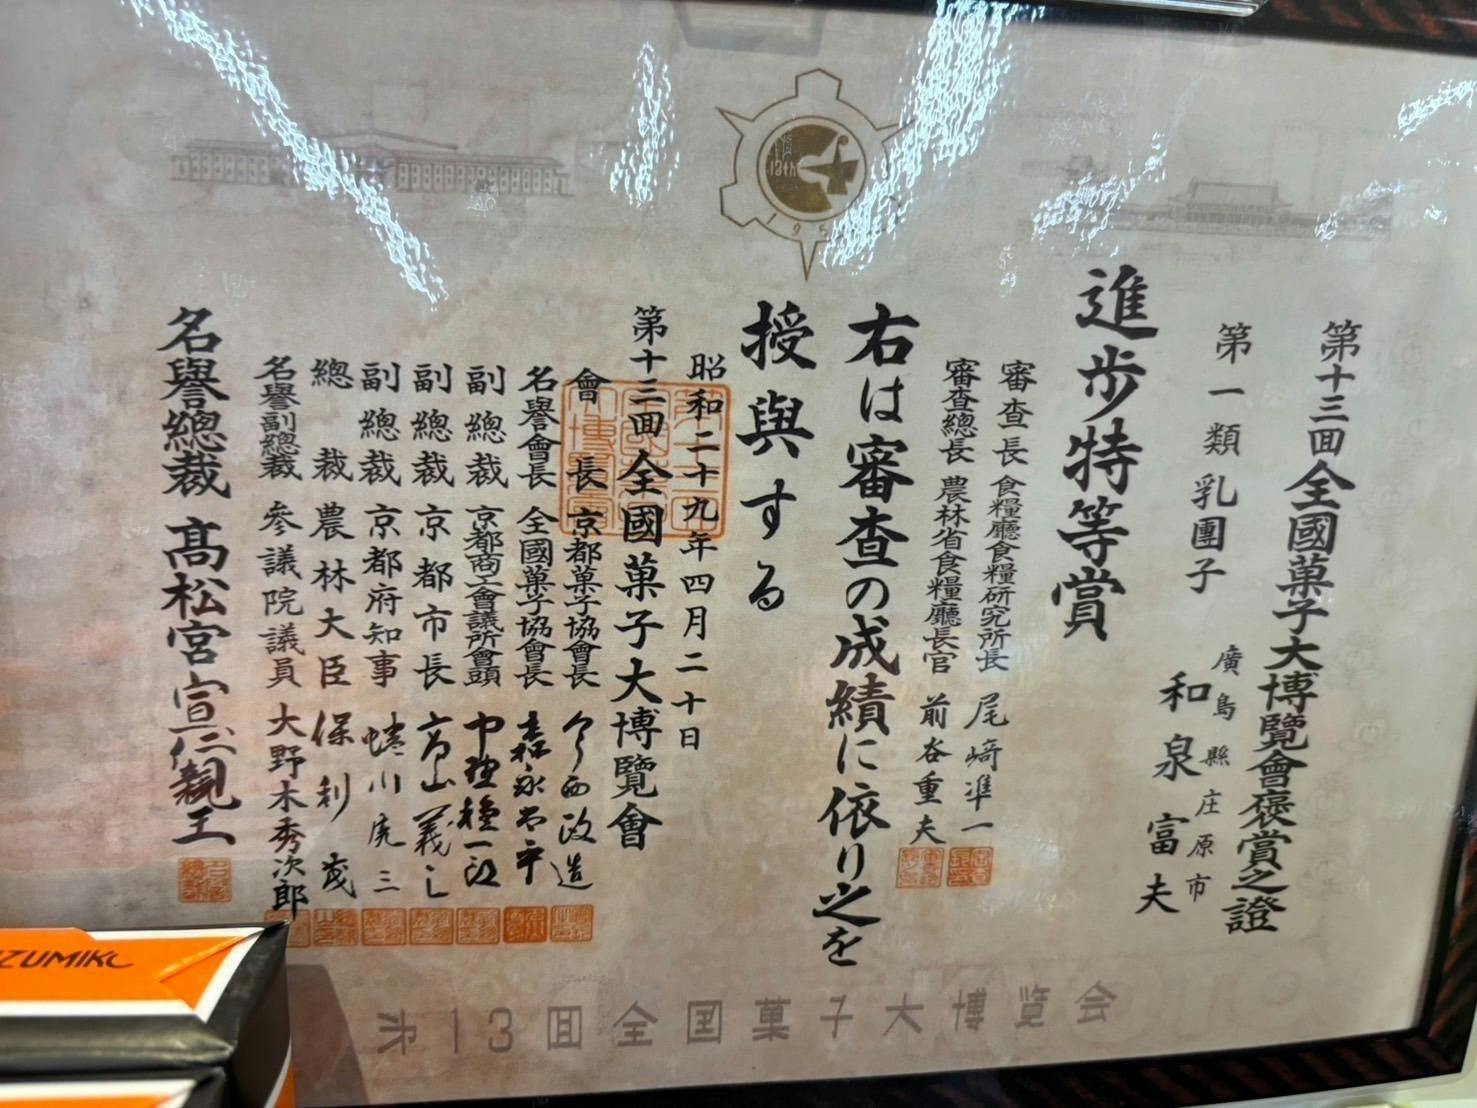 第十三回全國菓子大博覽會褒賞之證
第一類 乳團子
廣島縣庄原市
和泉富夫
進歩特等賞
審査長 食糧廳食糧研究所長 尾崎準一
審査總長 農林省食糧廳長官 前谷重夫
右は審査の成績に依り之を
授與する
昭和二十九年四月二十日
第十三回全國菓子大博覽會
會長 京都菓子協會長
名譽會長 全國菓子協會長
副總裁 京都商工會議所會頭 中野種一郎
副總裁 京都市長 高山義三
副總裁 京都府知事 蜷川虎三
總裁 農林大臣 保利茂
名譽副總裁 參議院議員 大野木秀次郎
名譽總裁 高松宮宣仁親王
13th
第13回全国菓子大博覧会
IZUMIKO